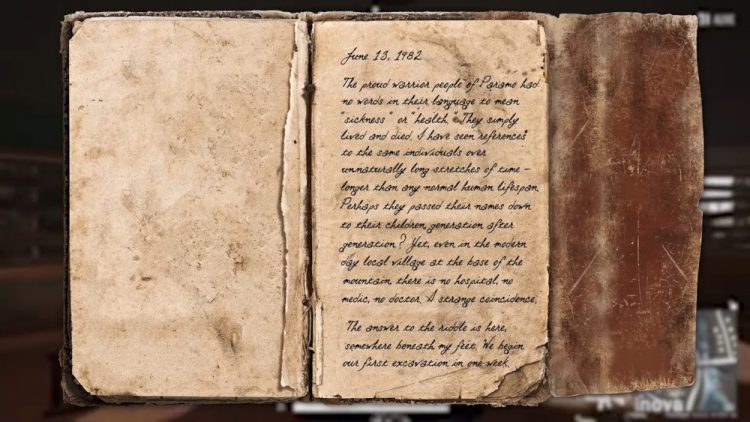 June 13, 1982
The proud warrior people of Paramo had
no words in their language to mean
"sickness" or "health." They simply
lived and died. I have seen references
to the same individuals over
unnaturally long stretches of time -
longer than any normal human lifespan.
Perhaps they passed their names down
to their children, generation after
generation? Yet, even in the modern
day local village at the base of the
mountain, there is no hospital, no
medic, no doctor. A strange coincidence.
The answer to the riddle is here,
somewhere beneath my feet. We begin
our first excavation in one week.
nova